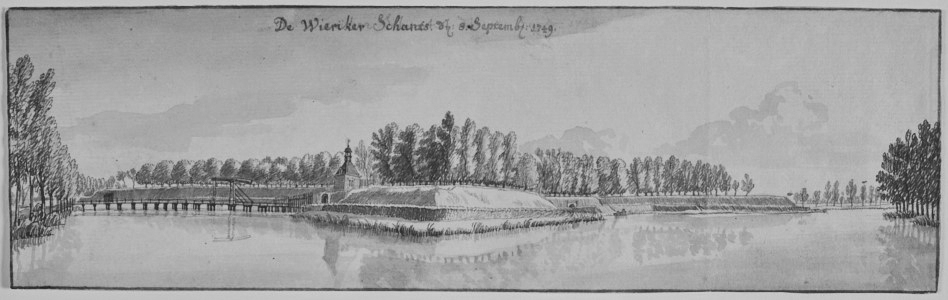 De Wieriker Schants. dị: 8. Septembị: 1749.